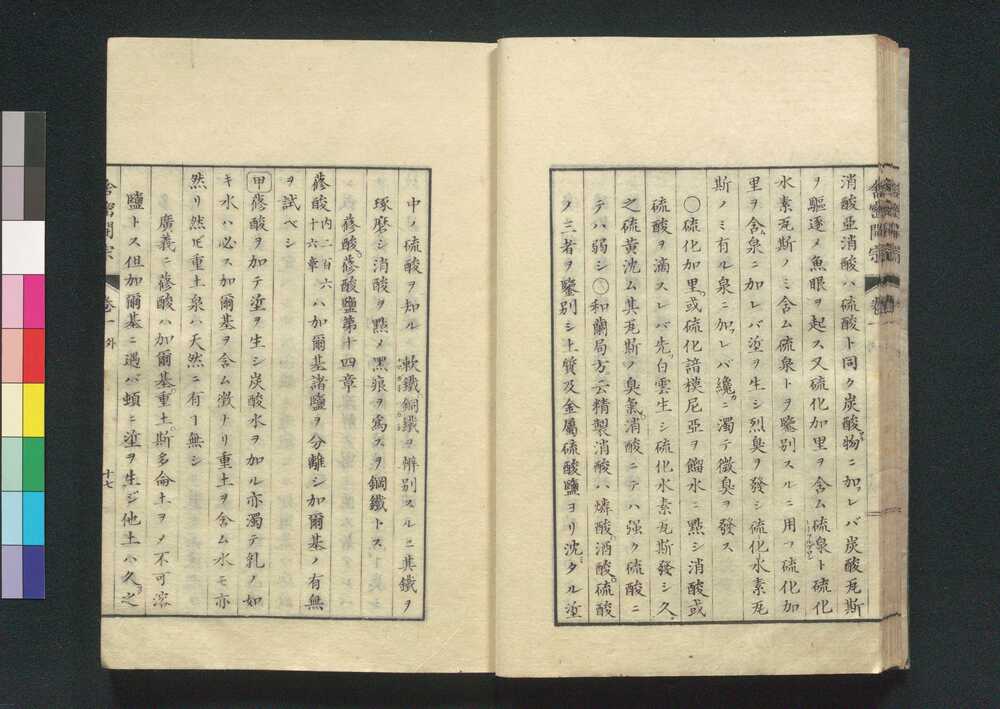 消酸亞消酸ハ硫酸ト同ク炭酸物ニ加レバ炭酸瓦斯
ヲ驅逐メ魚眼ヲ起ス又硫化加里ヲ含ム硫泉ト硫化
水素瓦斯ノミ含ム硫泉トヲ鑒別スルニ用フ硫化加
里ヲ含ム泉ニ加レバ塗ヲ生シ烈臭ヲ發シ硫化水素瓦
斯ノミ有ル泉ニ加レバ纔ニ濁テ微臭ヲ發ス
〇硫化加里或硫化諳模尼亞ヲ餾水ニ點シ消酸或
硫酸ヲ滴スレバ先白雲生シ硫化水素瓦斯發シ久
之硫黄沈ム其瓦斯ノ臭氣消酸ニテハ强ク硫酸ニ
テハ弱シ〇和蘭局方云精製消酸ハ燐酸酒酸硫酸
ノ三者ヲ鑒別シ土質及金屬硫酸鹽ヨリ沈タル塗
中ノ硫酸ヲ知ル〇軟鐵鋼鐵ヲ辨別スルニ其鐵ヲ
琢磨シ消酸ヲ點メ黒痕ヲ為スヲ鋼鐵トス
蓚酸蓚酸鹽第十四章
蓚酸内二百六十六章ハ加爾基諸鹽ヲ分離シ加爾基ノ有無
ヲ試ベシ
甲蓚酸ヲ加テ塗ヲ生シ炭酸水ヲ加ル亦濁テ乳ノ如
キ水ハ必ス加爾基ヲ含ム徴トリ重土ヲ含ム水モ亦
然リ然𪜈重土泉ハ天然ニ有ー無シ
廣義ニ蓚酸ハ加爾基重土斯多倫土ヲメ不可溶
鹽トス但加爾基ニ遇バ頓ニ塗ヲ生ジ他土ハ久之
舎密開宗
卷一
外
十七